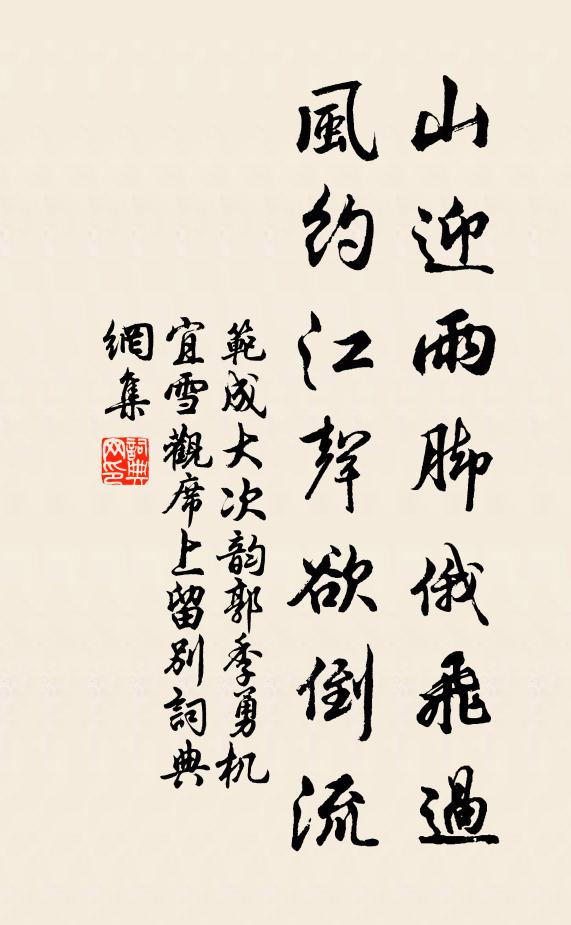 山迎雨脚俄飛過
風約江聲欲倒流
範成大次韵郭季勇机
宜雪觀席上留别詞典
網集
詞典
网印